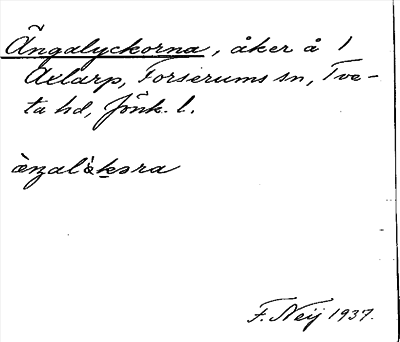 Ängalyckorna, åker å 1
Axlarp, Forserums sn, Tve-
ta hd, Jönk. l.
æ̀ŋalø̀kəra
F. Neij 1937.